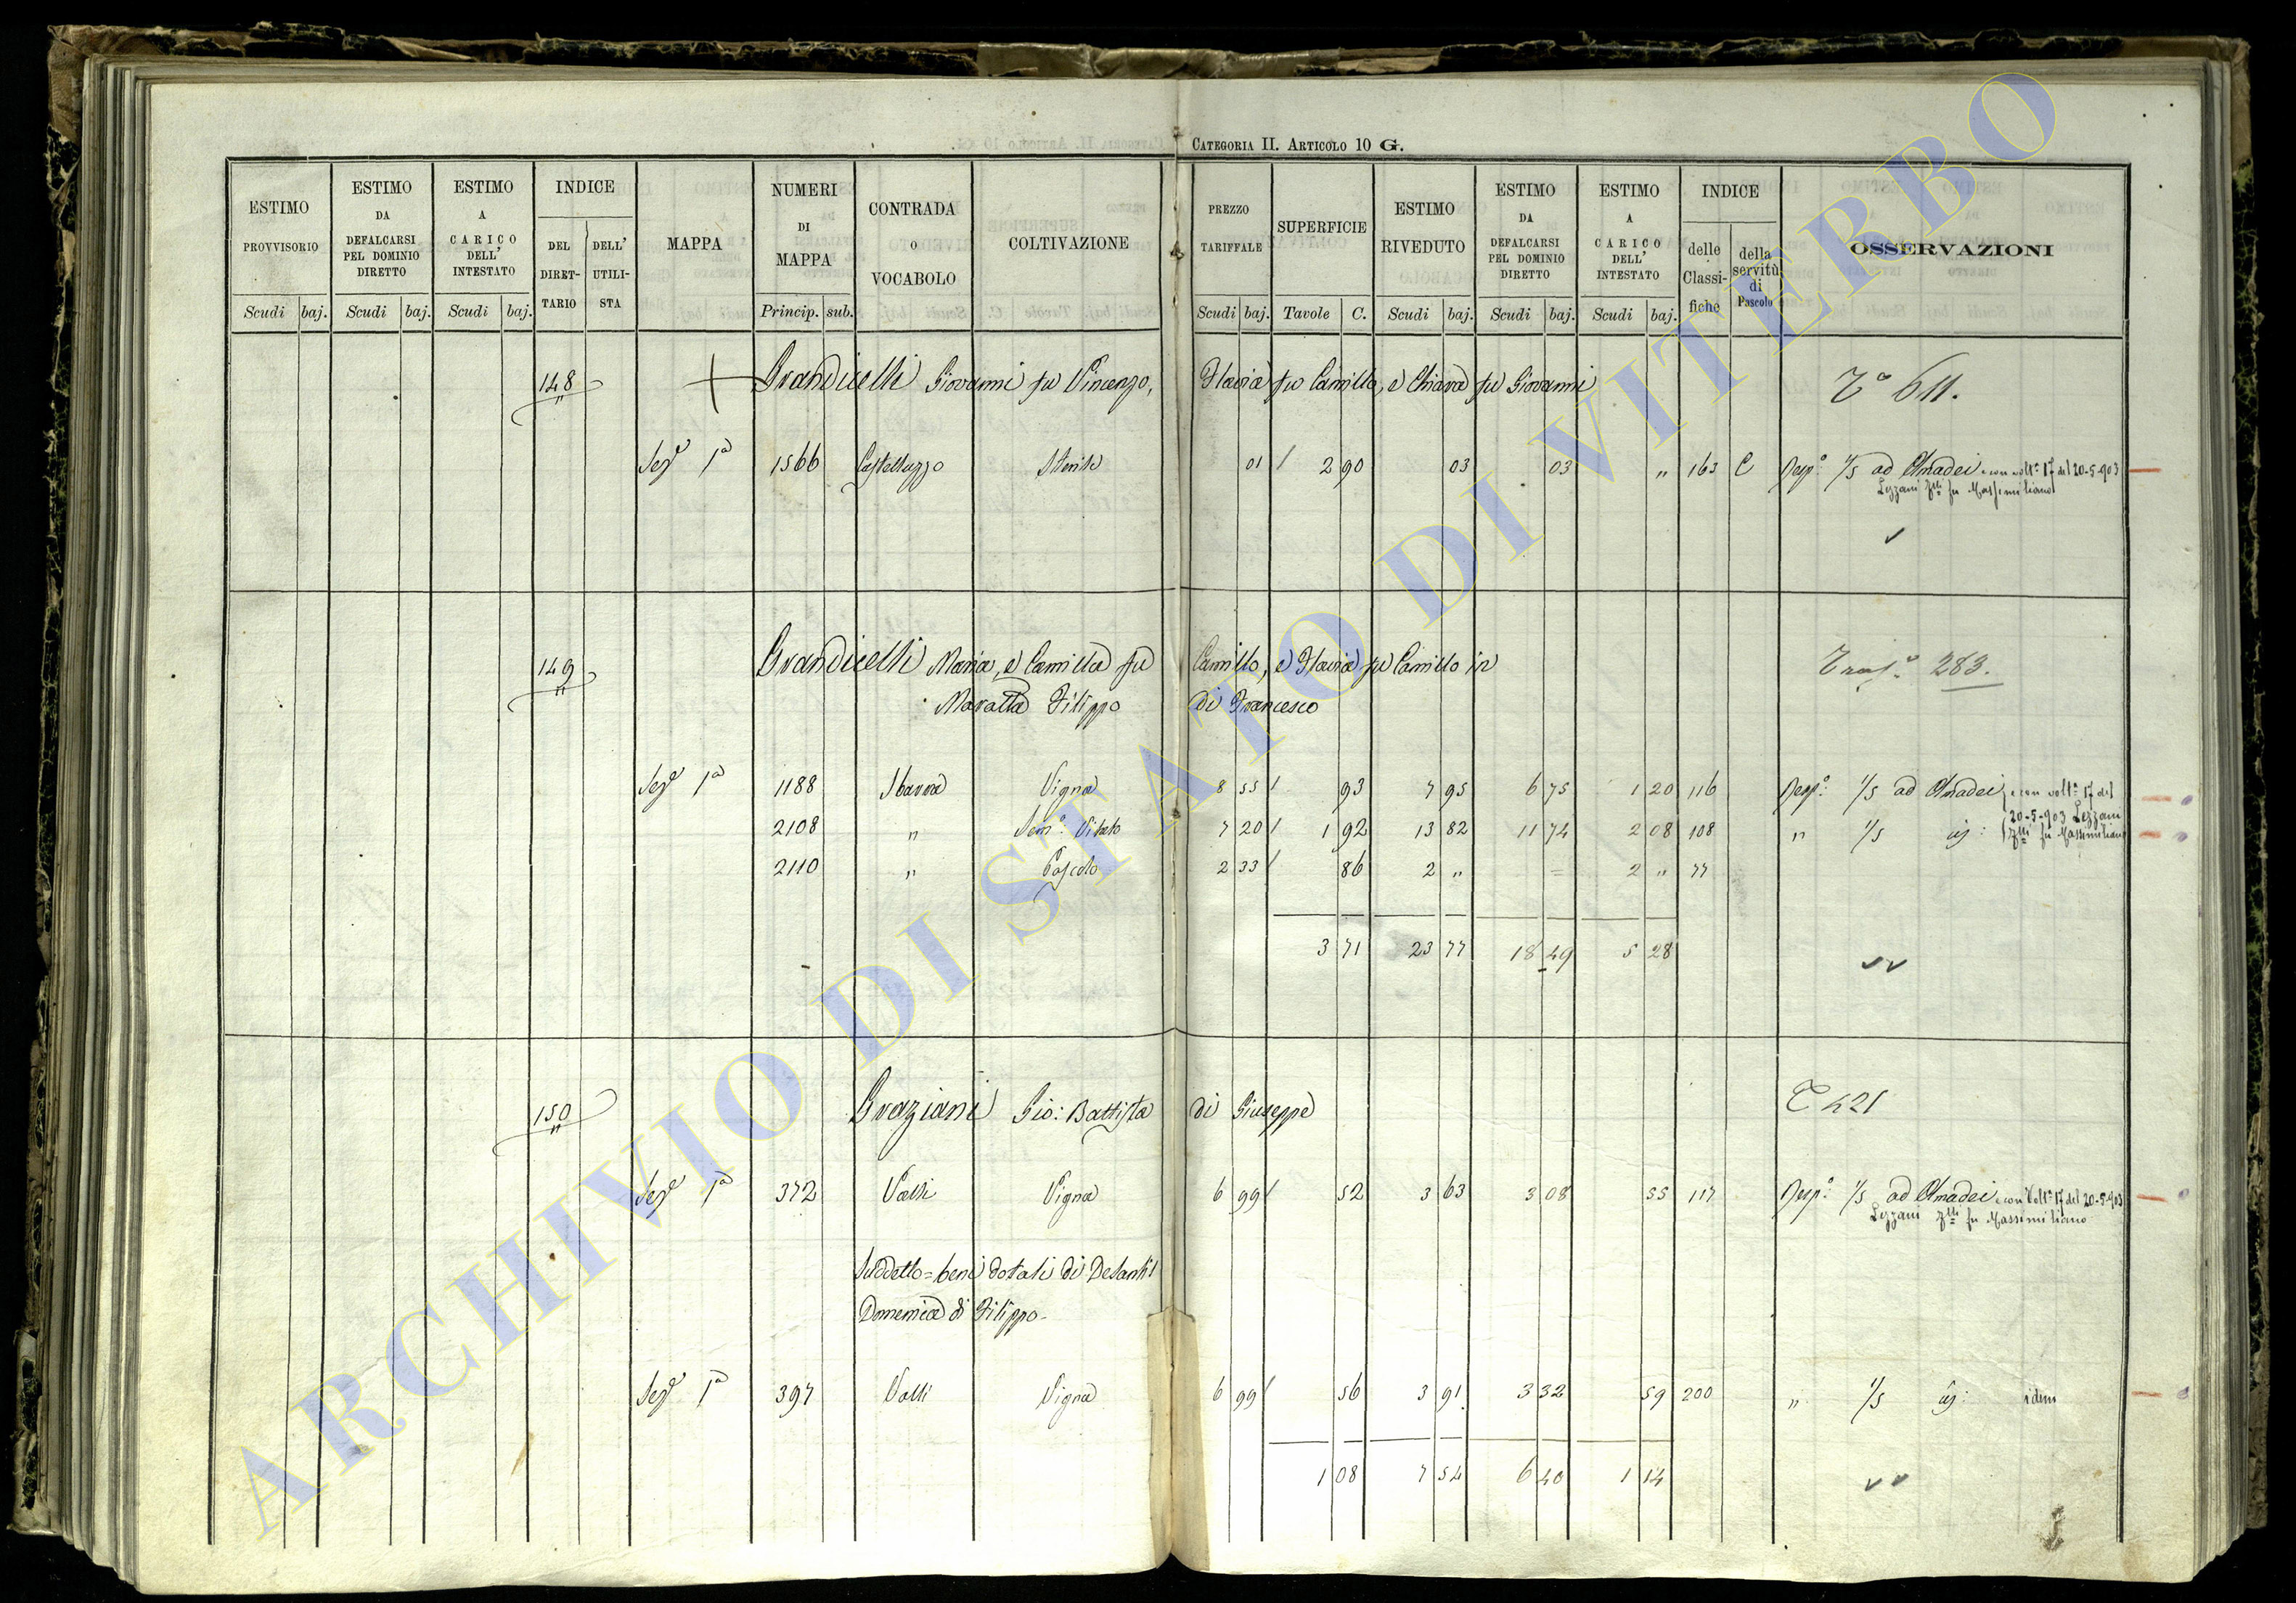 CATEGORIA II. ARTICOLO 10 G.
ESTIMO PROVVISORIO Scudi baj.
ESTIMO DA DEFALCARSI PEL DOMINIO DIRETTO Scudi baj.
ESTIMO A CARICO DELL' INTESTATO Scudi baj.
INDICE DEL DIRETTARIO DELL' UTILISTA
MAPPA
NUMERI DI MAPPA Princip. sub.
CONTRADA O VOCABOLO
COLTIVAZIONE
PREZZO TARIFFALE Scudi baj.
SUPERFICIE Tavole C.
ESTIMO RIVEDUTO Scudi baj.
ESTIMO DA DEFALCARSI PEL DOMINIO DIRETTO Scudi baj.
ESTIMO A CARICO DELL' INTESTATO Scudi baj.
INDICE delle Classifiche della servitù di Pascolo
OSSERVAZIONI
148 Grandicelli Giovanni fu Vincenzo, Flavia fu Camillo, e Chiara fu Giovanni Tº 611.
Seze 1a 1566 Castelluzzo Sterile 01 2 90 03 03 " 163 C Risp: 1/5 ad Amadei e con volta 17 del 20-5-903
Lezzani flli fu Massimiliano
149 Grandicelli Maria, e Camilla fu Camillo, e Flavia fu Camillo in Trasº 283.
Maratta Filippo di Francesco
Seze 1a 1188 Sbarra Vigna 8 55 93 7 95 6 75 1 20 116 Risp: 1/5 ad Amadei e con volta 17 del
20-5-903 Lezzani
2108 " Semº Vitato 7 20 1 92 13 82 11 74 2 08 108 " 1/5 flli fu Massimiliano
2110 " Pascolo 2 33 86 2 " = 2 " 77
3 71 23 77 18 49 5 28
150 Graziani Gio: Battista di Giuseppe T 421
Seze 1a 372 Valli Vigna 6 99 52 3 63 3 08 55 117 Risp: 1/5 ad Amadei e con Volta 17 del 20-5-903
Lezzani flli fu Massimiliano
Suddetto = beni dotali di Desantis
Domenica di Filippo
Seze 1a 397 Valli Vigna 6 99 56 3 91 3 32 59 200 " 1/5 idem
1 08 7 54 6 40 1 14
ARCHIVIO DI STATO DI VITERBO